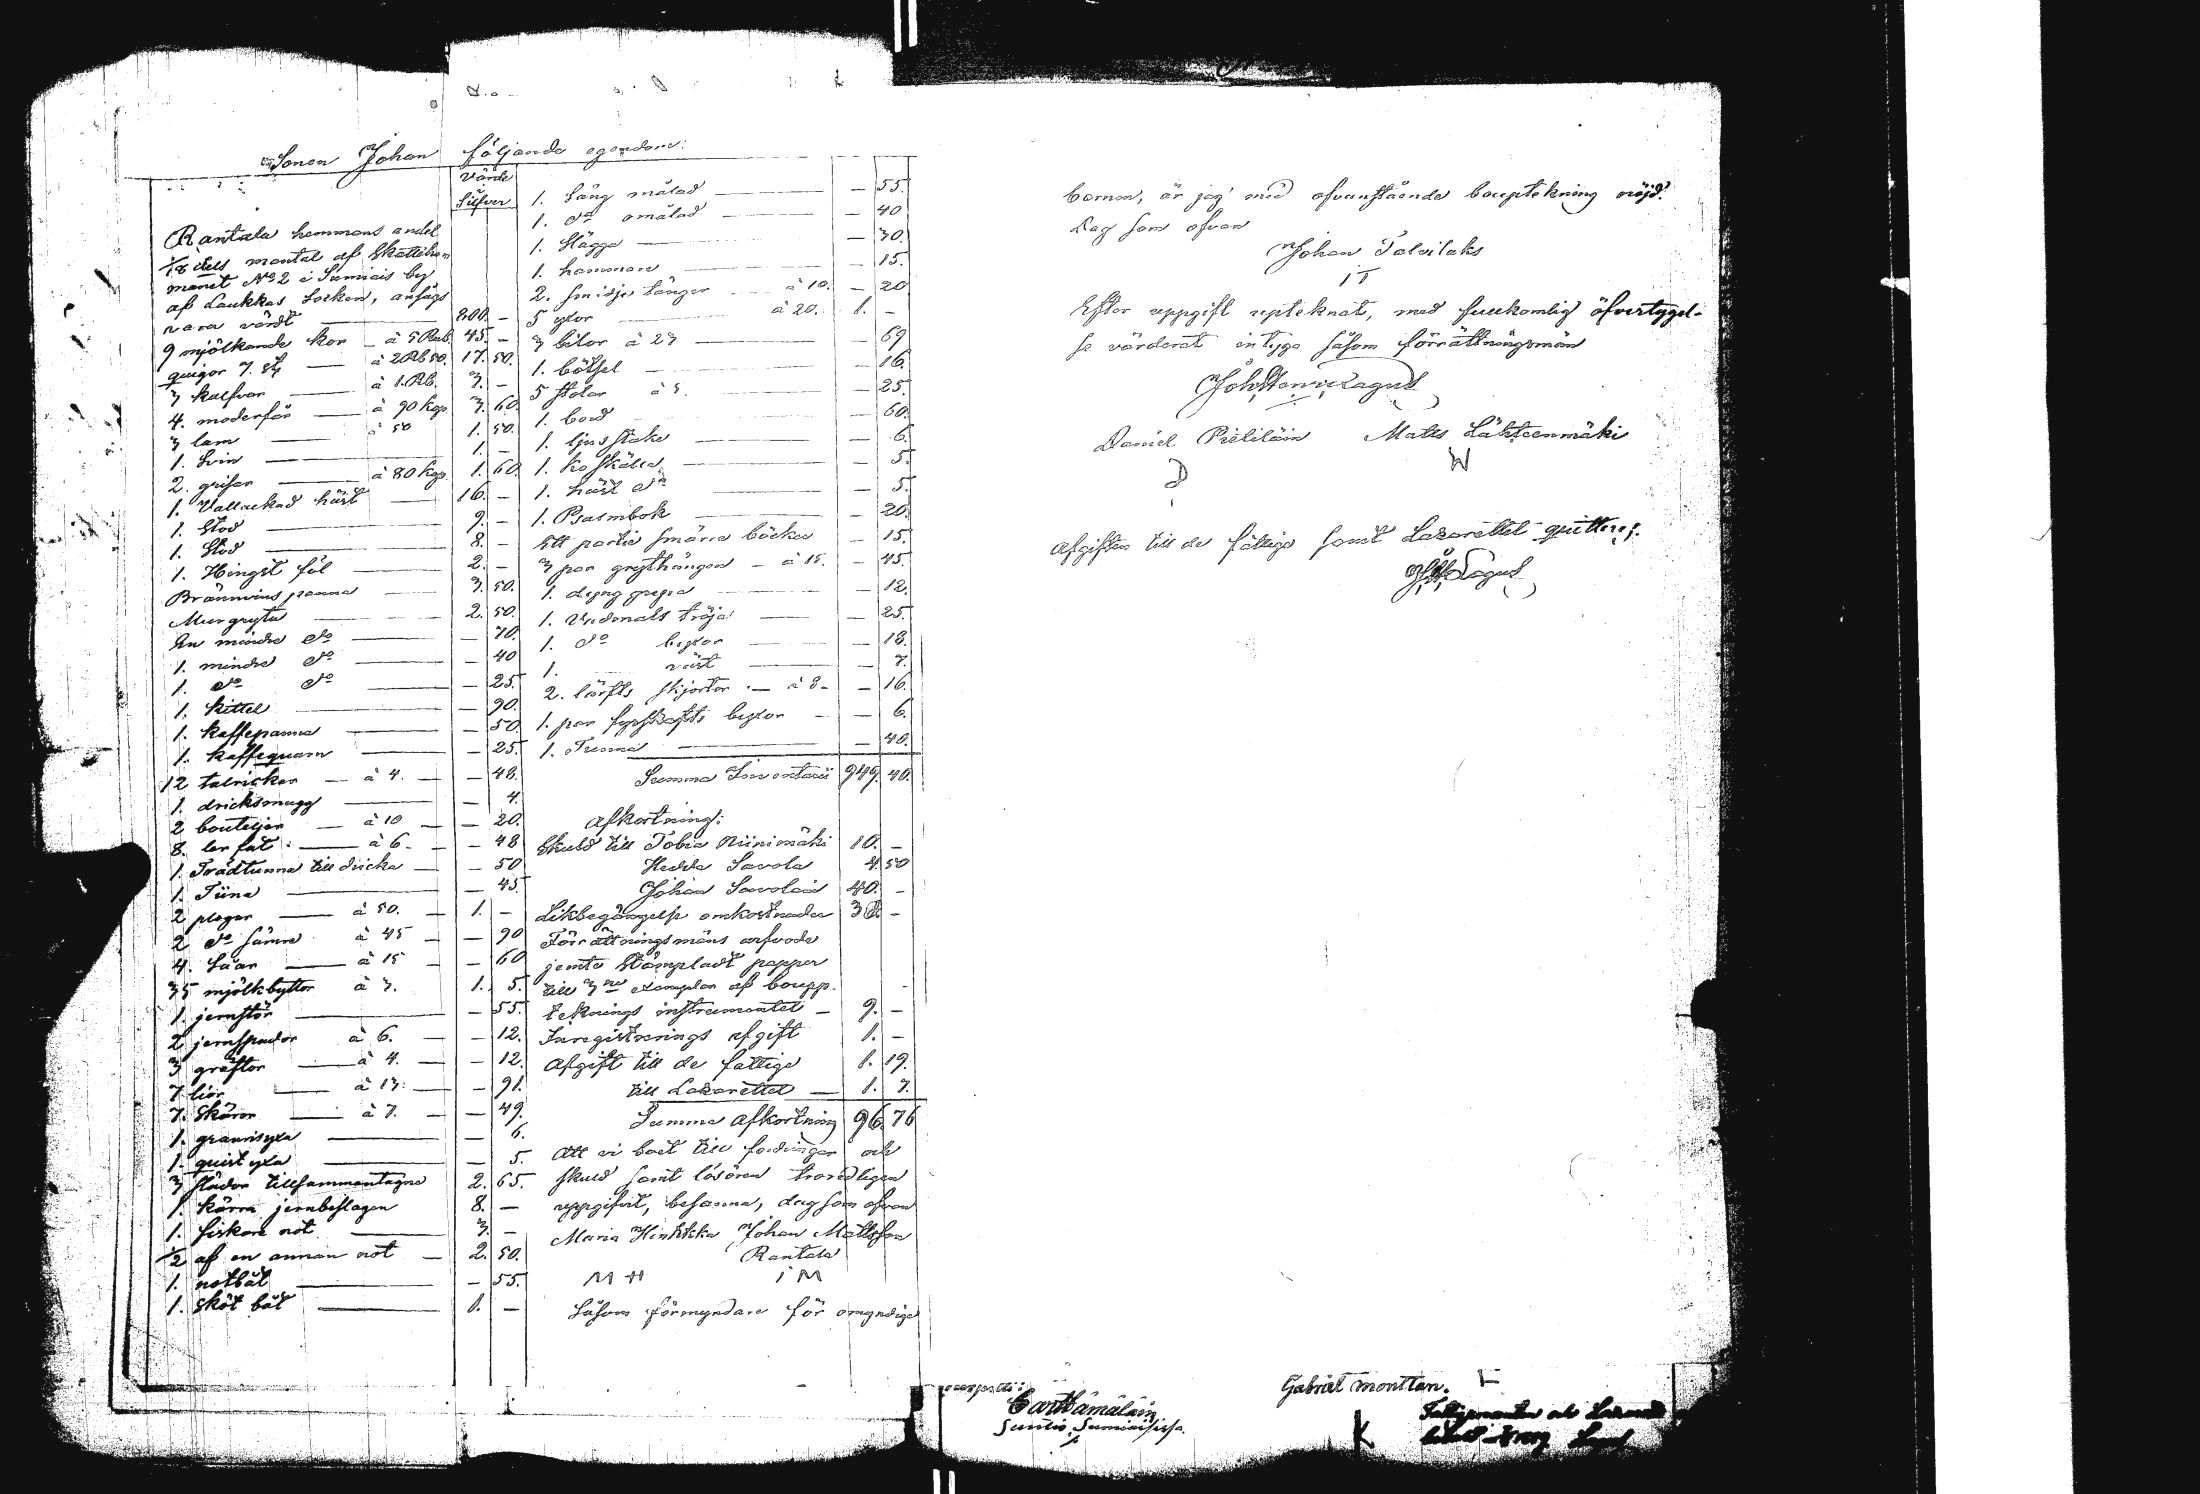 Sonen Johan följande egendom:
Värde
Silfver
Rantala hemmans andel
1/18 dels mantal af Skattehem
manet No 2 i Sumiais by
af Laukkas Socken, ansågs
vara värdt — 800. —
9 mjölkande kor — à 5 Rub. 45. —
quigor 7. st — à 2 Rb 50. 17. 50.
3 kalfvar — à 1. Rb. 3. —
4. moderfår — à 90 kop. 3. 60.
3 lam — à 50 1. 50.
1. Svin — 1. —
2. grisar — à 80 kop. 1. 60.
1. Vallackad häst — 16. —
1. Stod — 9. —
1. Stod — 8. —
1. Hingst föl — 2. —
Brännvins panna — 3. 50.
Mur gryta — 2. 50.
En mindre do — — 70.
1. mindre do — — 40
1. do do — — 25.
1. kittel — — 90.
1. kaffepanna — — 50
1. kaffequarn — — 25.
12 talricker — à 4. — — 48.
1. dricksmugg — — 4.
2 bouteljer — à 10 — — 20.
8. ler fat — à 6. — — 48
1. Trädtunna till dricka — — 50
1. Tiina — — 45
2 plogar — à 50. — 1. —
2 do sämre à 45 — — 90
4. Såar — à 15 — — 60
35 mjölkbyttor à 3. 1. 5.
1. jernstör — — 55.
2 jernspador à 6. — — 12.
3 gräftor — à 4. — — 12.
7 liar — à 13. — — 91.
7. Skäror — à 7. — — 49.
1. — 6.
1. quist yxa — — 5.
3 slädor tillsammantagne 2. 65.
1. kärra jernbeslagen 8. —
1. fiskare not — 3. —
1/2 af en annan not — 2. 50.
1. notbåt — — 55.
1. Sköt båt — 1. —
1. Säng målad — — 55.
1. do omålad — — 40
1. Slägga — — 30.
1. hammare — — 15.
2. smidje tänger — à 10. — 20
5 yxor — à 20. 1. —
3 bilor à 23 — — 69
1. bötsel — — 16.
5 stolar à 5. — 25.
1. bord — — 60.
1. ljus stake — — 6.
1. ko skälla — — 5.
1. häst do — — 5.
1. Psalmbok — — 20.
Ett partie smärre böcker — 15.
3 par grythängen — à 15. — 45.
1. dyng grepa — — 12.
1. Vadmals tröja — — 25.
1. do byxor — — 18.
1. väst — — 7.
2. lärfts skjortor — à 8 — — 16.
1. par fyrskafts byxor — — 6.
1. Tunna — — 40.
Summa Inventarii 949. 40.
Afkortning:
Skuld till Tobia Niinimäki 10. —
Hedda Savola 4. 50
Johan Savolain 40. —
Likbegängelse omkostnader —
Förrättningsmäns arfvode
jemte Stämpladt papper
till 3ne exemplar af boupp.
teknings instrumentet — 9. —
Inregistrerings afgift 1. —
Afgift till de fattige 1. 19.
till Lazarettet — 1. 7.
Summa Afkortning 96. 76
Att vi boet till fordringar och
skuld samt lösören troredligen
uppgifvit, besanna, dag som ofvan
Maria Johan Mattsson
Rantala
M H I M
Såsom förmyndare för omyndige
barnen, är jag med ofvanstående bouptekning nöjd.
Dag som ofvan
Johan Talvilaks
I T
Efter uppgift uptecknat, med fullkomlig öfvertygel-
se värderat intyga såsom förrättningsmän
Lagus
Daniel Pieliläin Matts Lähteenmäki
D W
Afgiften till de fattige samt Lazarettet
Lagus
Carl Hämäläin
Suntio Sumiaisissa.
Gabriel
K